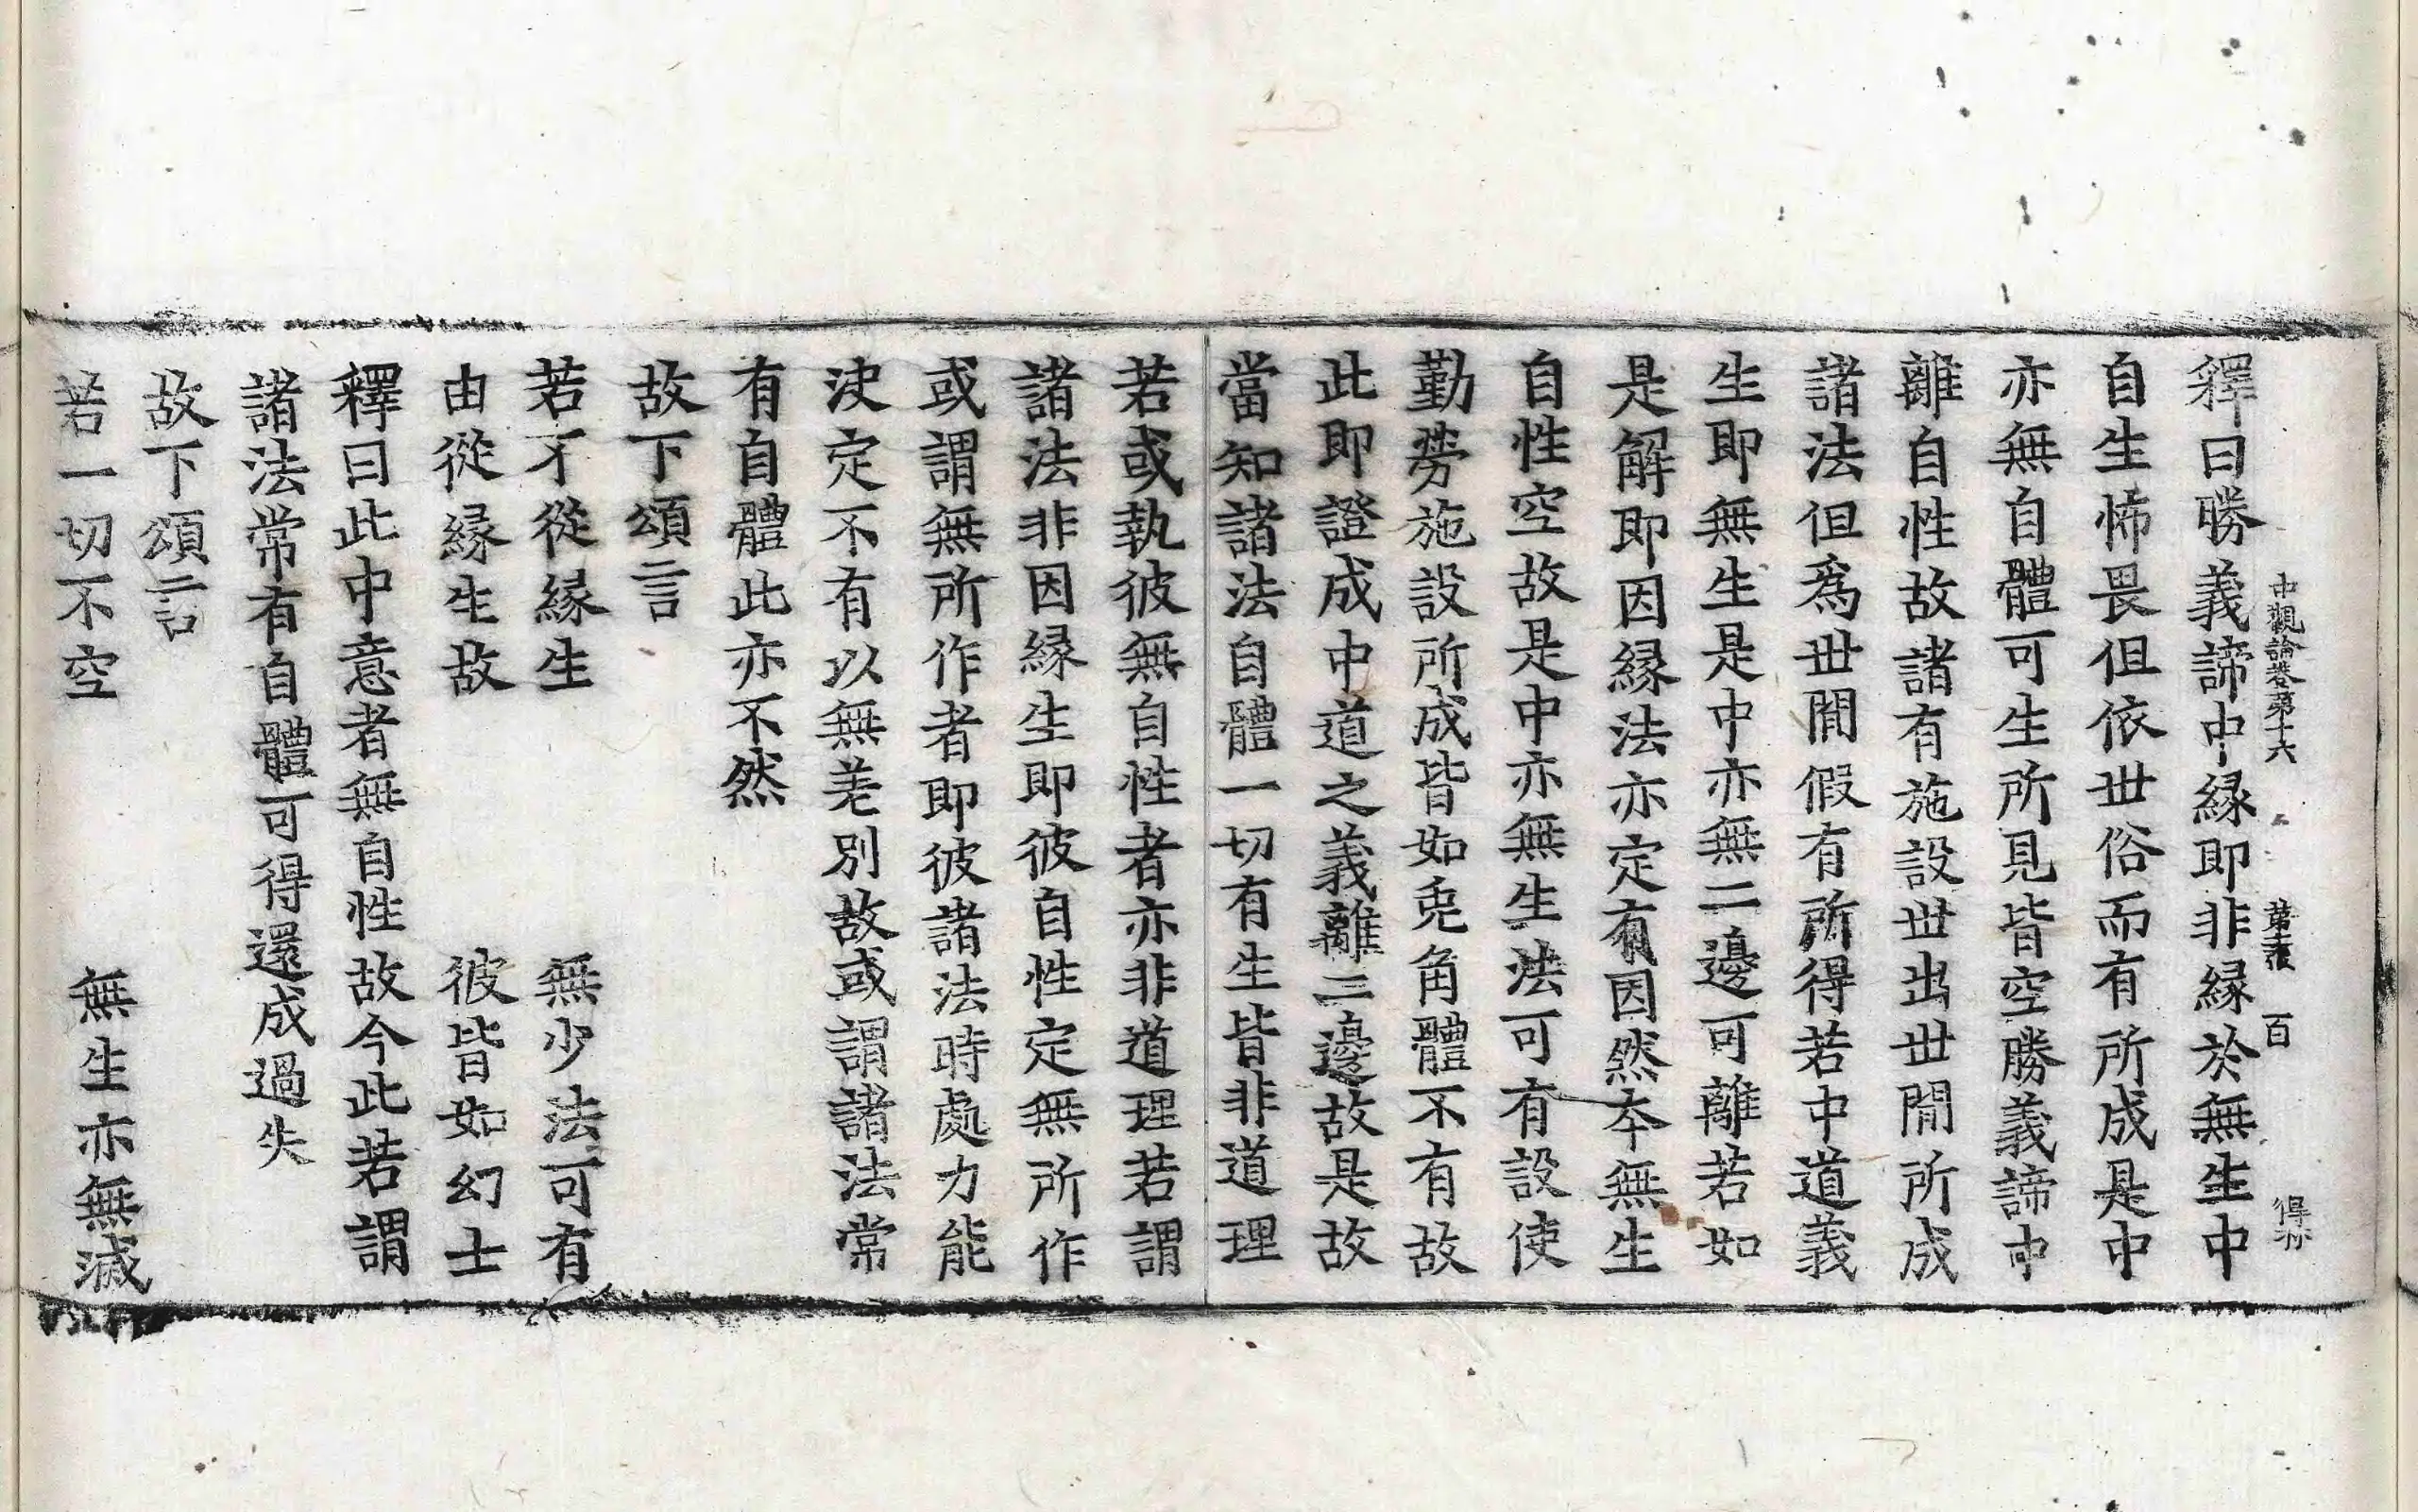 中觀論卷第十六 第十張 百 得孙
釋曰勝義諦中縁即非縁於無生中
自生怖畏但依世俗而有所成是中
亦無自體可生所見皆空勝義諦中
離自性故諸有施設世出世間所成
諸法但爲世間假有所得若中道義
生即無生是中亦無二邊可離若如
是解即因縁法亦定有因然本無生
自性空故是中亦無生法可有設使
勤勞施設所成皆如兎角體不有故
此即證成中道之義離二邊故是故
當知諸法自體一切有生皆非道理
若或執彼無自性者亦非道理若謂
諸法非因縁生即彼自性定無所作
或謂無所作者即彼諸法時處力能
決定不有以無差別故或謂諸法常
有自體此亦不然
故下頌言
若不從縁生 無少法可有
由從縁生故 彼皆如幻士
釋曰此中意者無自性故今此若謂
諸法常有自體可得還成過失
故下頌言
若一切不空 無生亦無滅